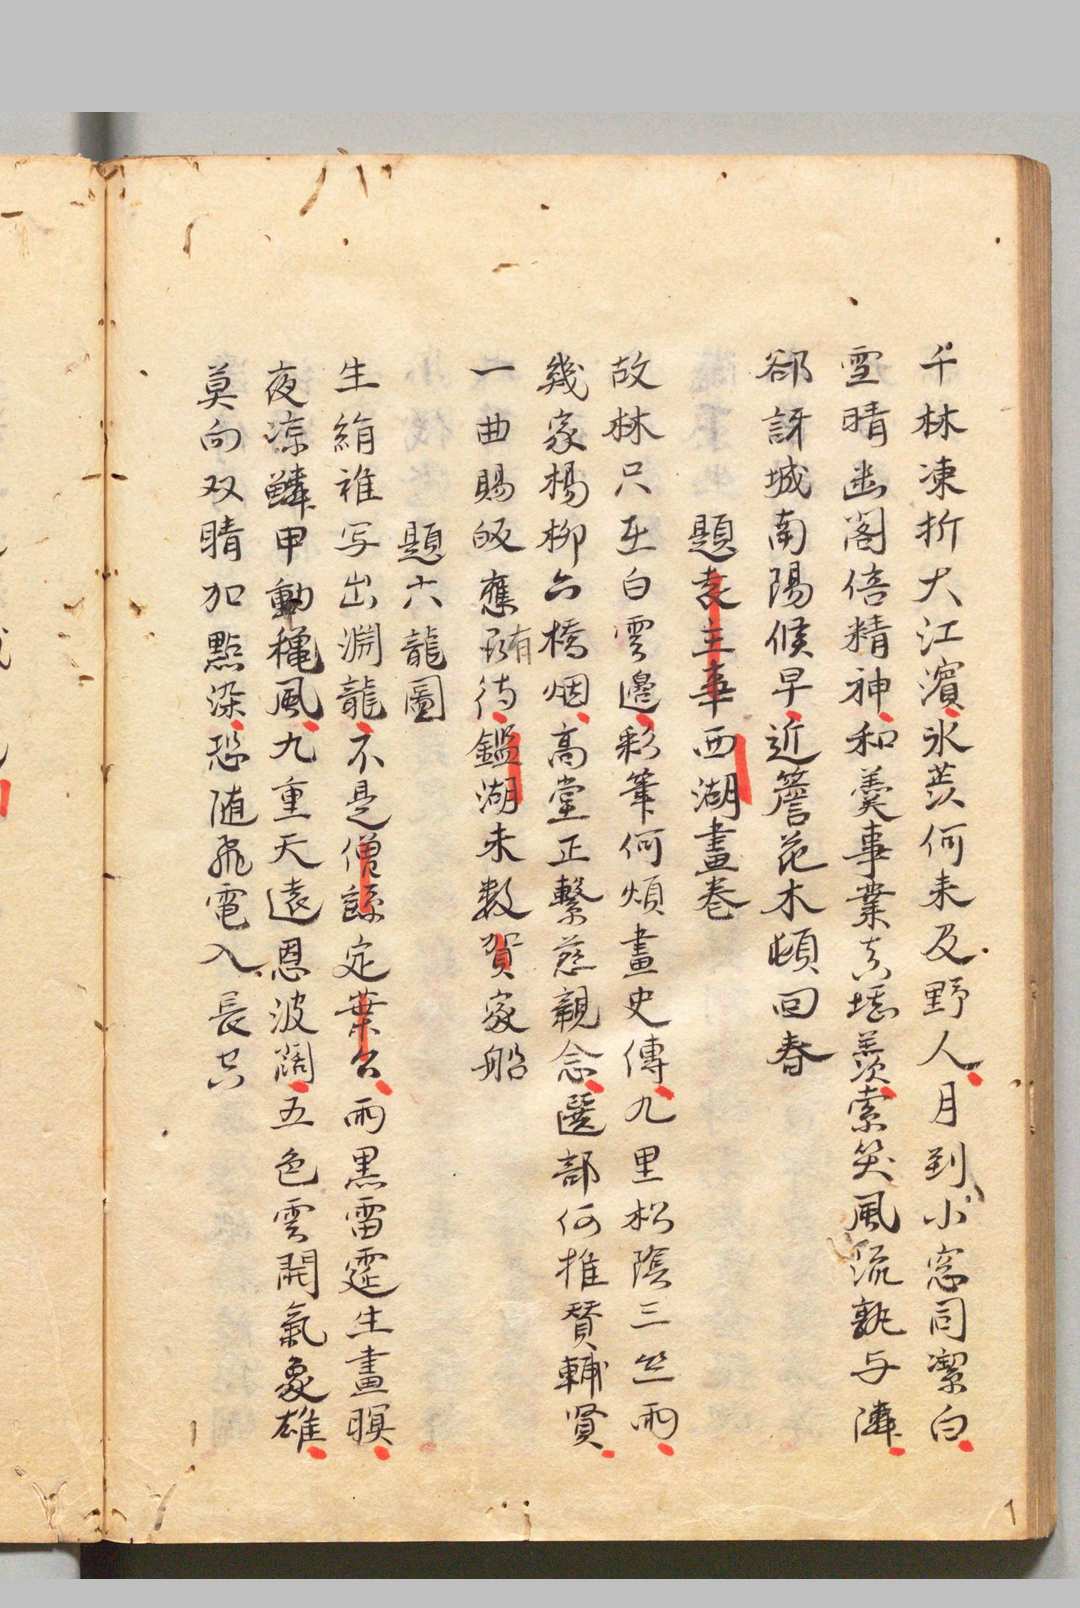 千林凍折大江濱氷蕊何来及野人月到小窓同潔白
雪晴幽閣倍精神和羹事業真堪羨索笑風流孰与隣
郤訝城南陽候早近簷花木頓回春
題袁主事西湖畫巻
故林只在白雲邊彩筆何煩畫史傳九里松陰三竺雨
幾家楊柳六橋烟高堂正繫慈親念選部何推賛輔賢
一曲賜皈應有待鑑湖未数賀家船
題六龍圖
生絹誰写出淵龍不是僧繇定葉公雨黒雷霆生畫暝
夜凉鱗甲動穐風九重天遠恩波闊五色雲開氣象雄
莫向双睛加點染恐随飛電入長空